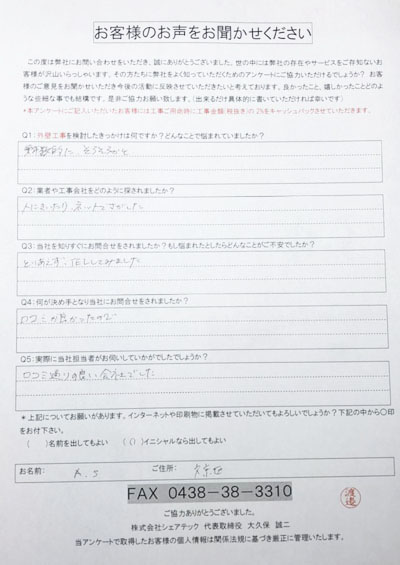 お客様のお声をお聞かせください
この度は弊社にお問い合わせをいただき、誠にありがとうございました。世の中には弊社の存在やサービスをご存知ないお
客様が沢山いらっしゃいます。その方たちに弊社をよく知っていただくためのアンケートにご協力いただけるでしょうか？お客
様のご意見をお聞かせいただき今後の活動に反映させていただきたいと考えております。良かったこと、嬉しかったことどのよ
うな些細な事でも結構です。是非ご協力お願い致します。(出来るだけ具体的に書いていただければ幸いです)
*本アンケートにご記入いただいたお客様には工事ご用命時に工事金額(税抜き)の2%をキャッシュバックさせていただきます。
Q1:外壁工事を検討したきっかけは何ですか？どんなことで悩まれていましたか？
年数的に そろそろかと
Q2:業者や工事会社をどのように探されましたか？
人にきいたり、ネットでさがしました
Q3:当社を知りすぐにお問合せをされましたか？もし悩まれたとしたらどんなことがご不安でしたか？
とりあえず、TELしてみました
Q4:何が決め手となり当社にお問合せをされましたか？
口コミが良かったので
Q5:実際に当社担当者がお伺いしていかがでしたでしょうか？
口コミ通りの良い会社でした
*上記についてお願いがあります。インターネットや印刷物に掲載させていただいてもよろしいでしょうか？下記の中から〇印
をお付下さい。
( )名前を出してもよい (〇)イニシャルなら出してもよい
お名前: ご住所:
FAX 0438-38-3310
渡邉
ご協力ありがとうございました。
株式会社シェアテック 代表取締役 大久保 誠二
当アンケートで取得したお客様の個人情報は関係法規に基づき厳正に管理いたします。